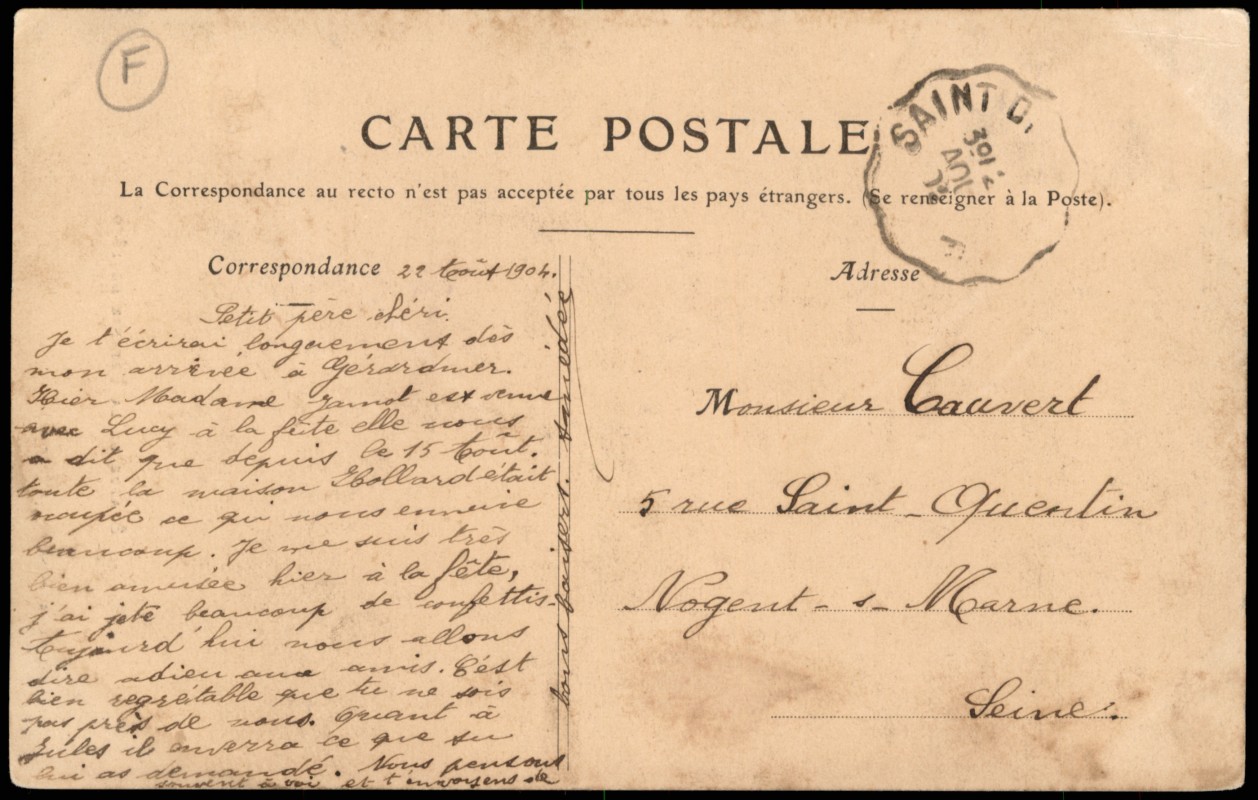 F
CARTE POSTALE
SAINT D.
La Correspondance au recto n'est pas acceptée par tous les pays étrangers. (Se renseigner à la Poste).
Correspondance 22 Août 1904.
Petit père chéri.
Je t'écrirai longuement dès
mon arrivée à Gérardmer.
Hier Madame Jamot est venue
avec Lucy à la fête elle nous
a dit que depuis le 15 Août.
toute la maison Hollard était
occupée ce qui nous ennuie
beaucoup. Je me suis très
bien amusée hier à la fête,
j'ai jeté beaucoup de confettis.
Aujourd'hui nous allons
dire adieu aux amis. C'est
bien regrétable que tu ne sois
pas près de nous. Quant à
Jules il enverra ce que tu
lui as demandé. Nous pensons
souvent à toi et t'envoyons de
bons baisers.
Adresse
Monsieur Cauvert
5 rue Saint-Quentin
Nogent-s-Marne.
Seine.